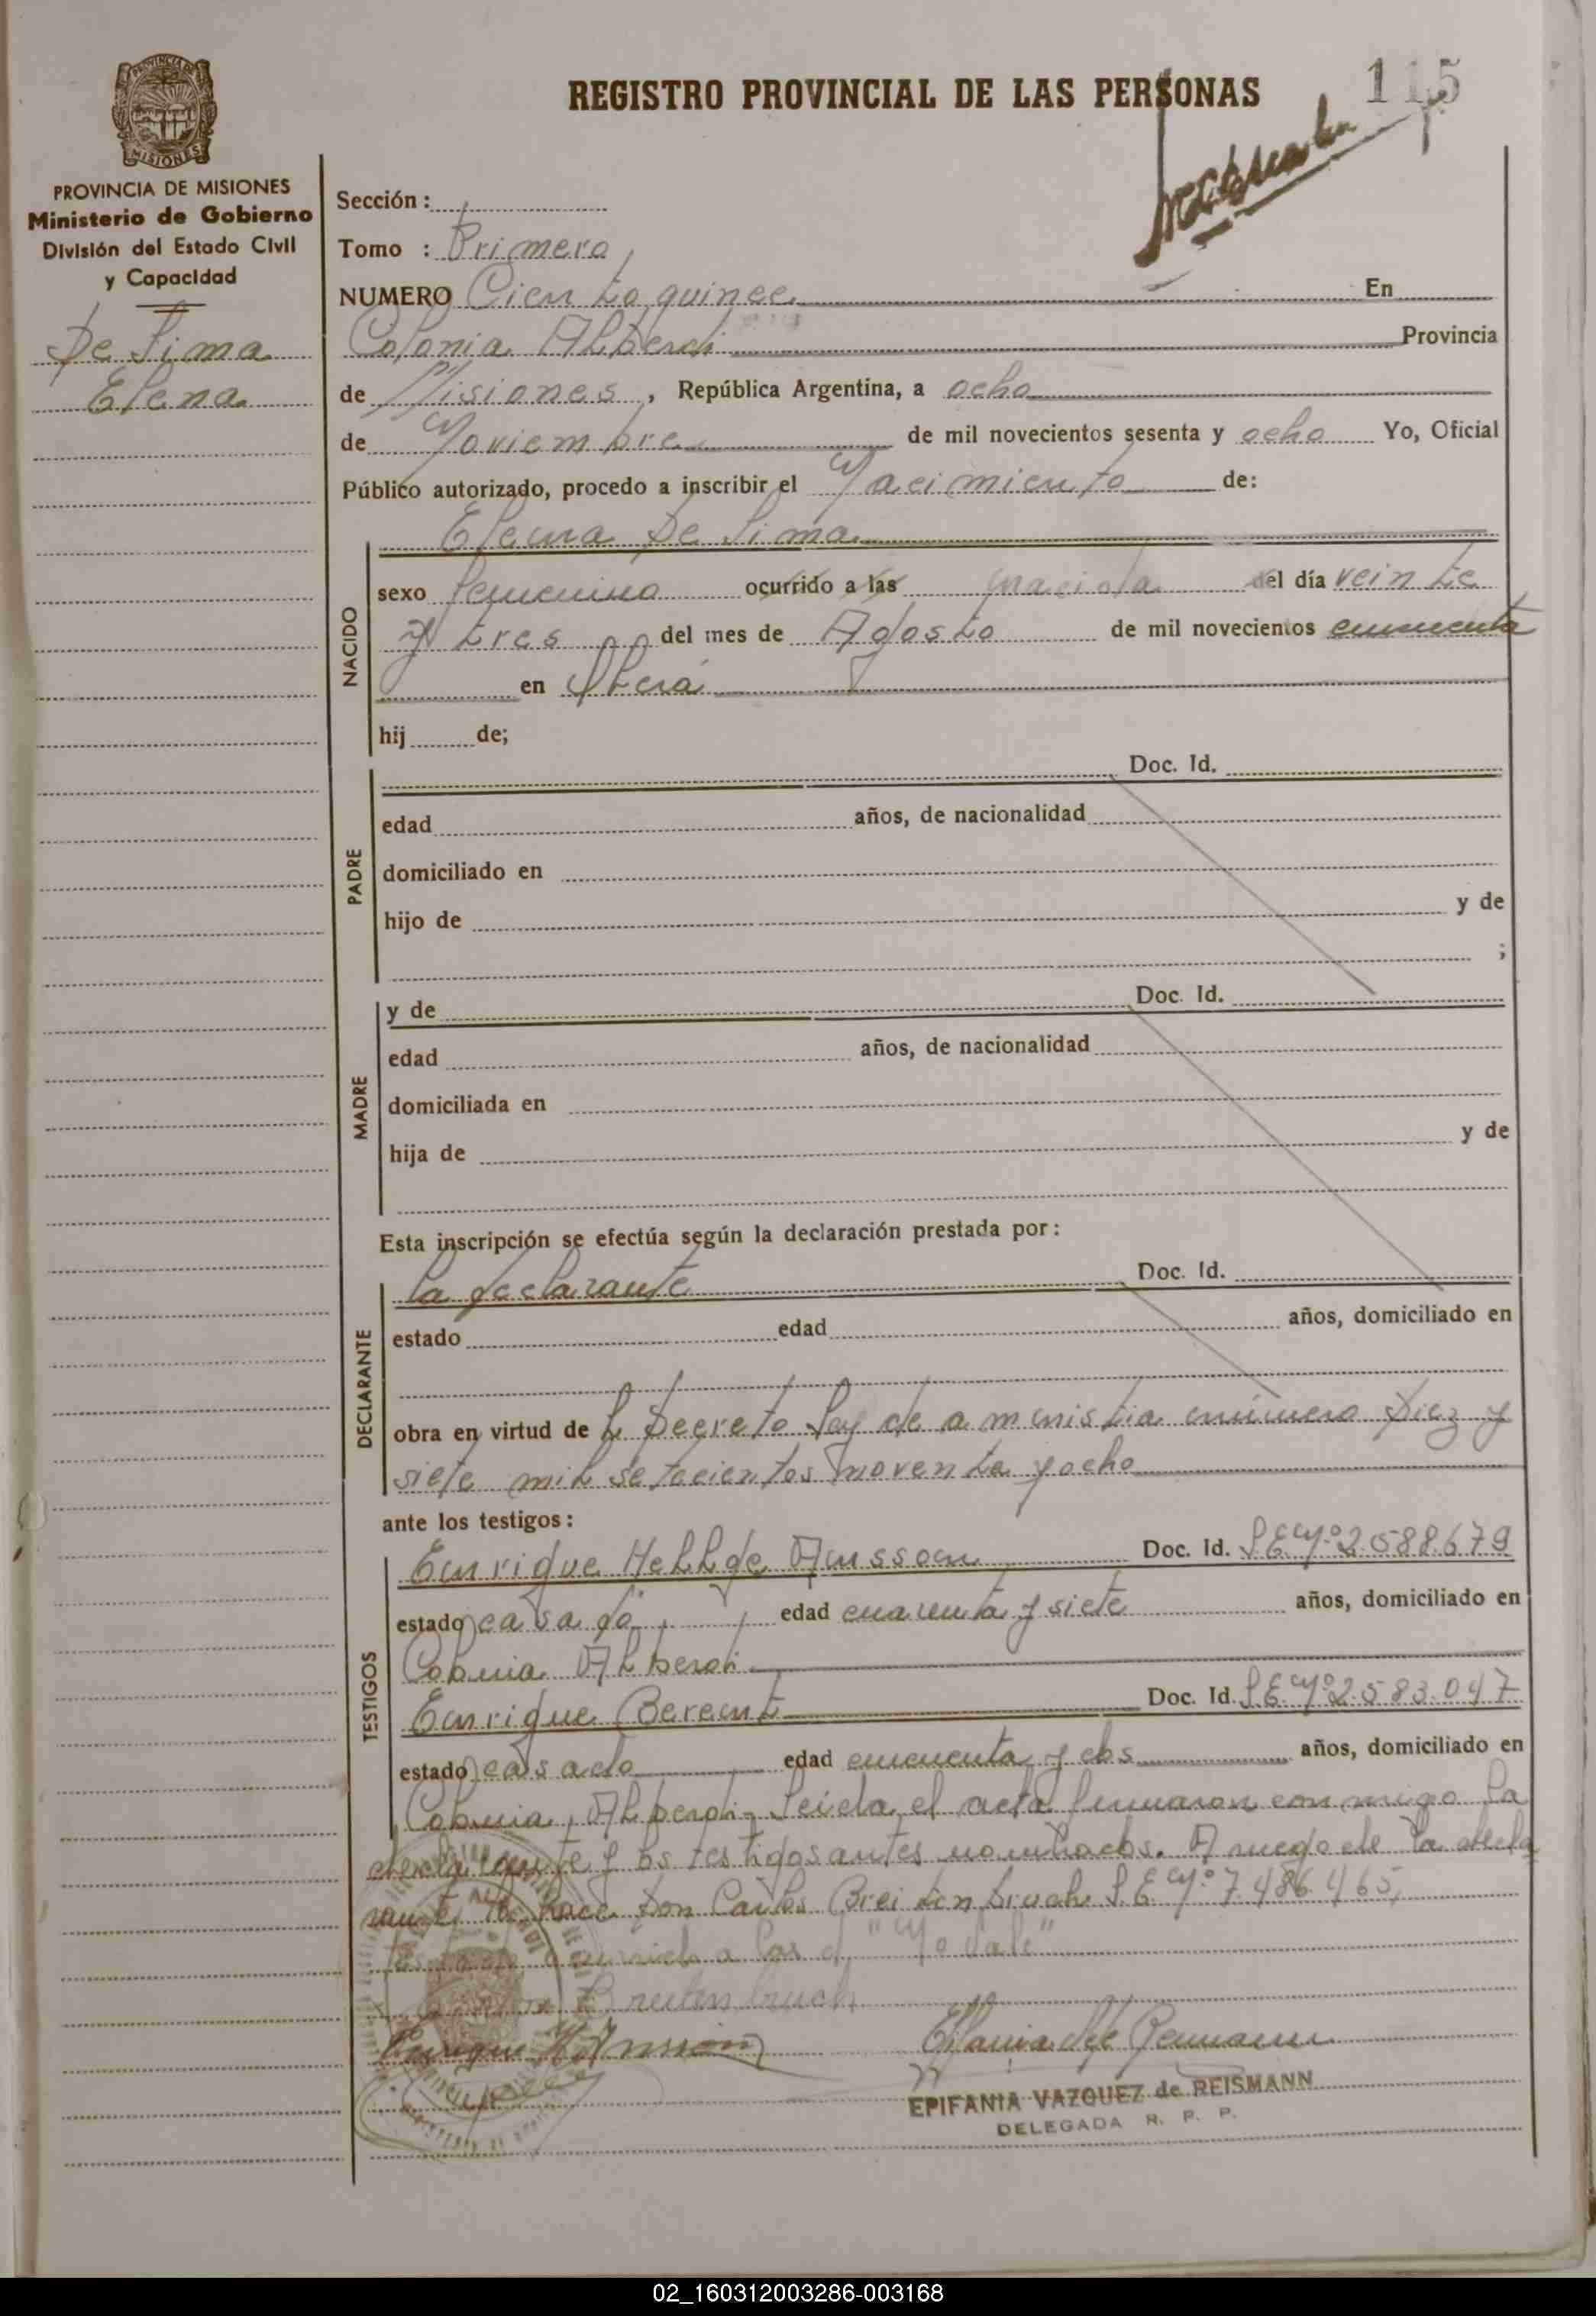 REGISTRO PROVINCIAL DE LAS PERSONAS
115
PROVINCIA DE MISIONES
Ministerio de Gobierno
División del Estado Civil
y Capacidad
De Lima
Elena
Sección :
Tomo : Primero
NUMERO Ciento quince En
Colonia Alberdi Provincia
de Misiones, República Argentina, a ocho
de Noviembre de mil novecientos sesenta y ocho Yo, Oficial
Público autorizado, procedo a inscribir el Nacimiento de:
Elena De Lima
NACIDO
sexo femenino ocurrido a las nacida del día veinte
y tres del mes de Agosto de mil novecientos cincuenta
en Oberá
hij de;
PADRE
Doc. Id.
edad años, de nacionalidad
domiciliado en
hijo de y de
;
MADRE
y de Doc. Id.
edad años, de nacionalidad
domiciliada en
hija de y de
Esta inscripción se efectúa según la declaración prestada por :
DECLARANTE
la declarante Doc. Id.
estado edad años, domiciliado en
obra en virtud de L Decreto Ley de amnistia número Diez y
siete mil setecientos noventa y ocho
ante los testigos :
TESTIGOS
Enrique Hellge Ansson Doc. Id. L.E. Nº 2.588.679
estado casado edad cuarenta y siete años, domiciliado en
Colonia Alberdi
Enrique Berent Doc. Id. L.E. Nº 2.583.047
estado casado edad cincuenta y dos años, domiciliado en
Colonia Alberdi. Leida el acta firmaron conmigo la
declarante y los testigos antes nombrados. A ruego de la decla
rante, lo hace Don Carlos Breitenbruch L.E. Nº 7.486.465,
Testado ocurrido a las d "No Vale"
Breitenbruch
EPIFANIA VAZQUEZ de REISMANN
DELEGADA R. P. P.
02_160312003286-003168